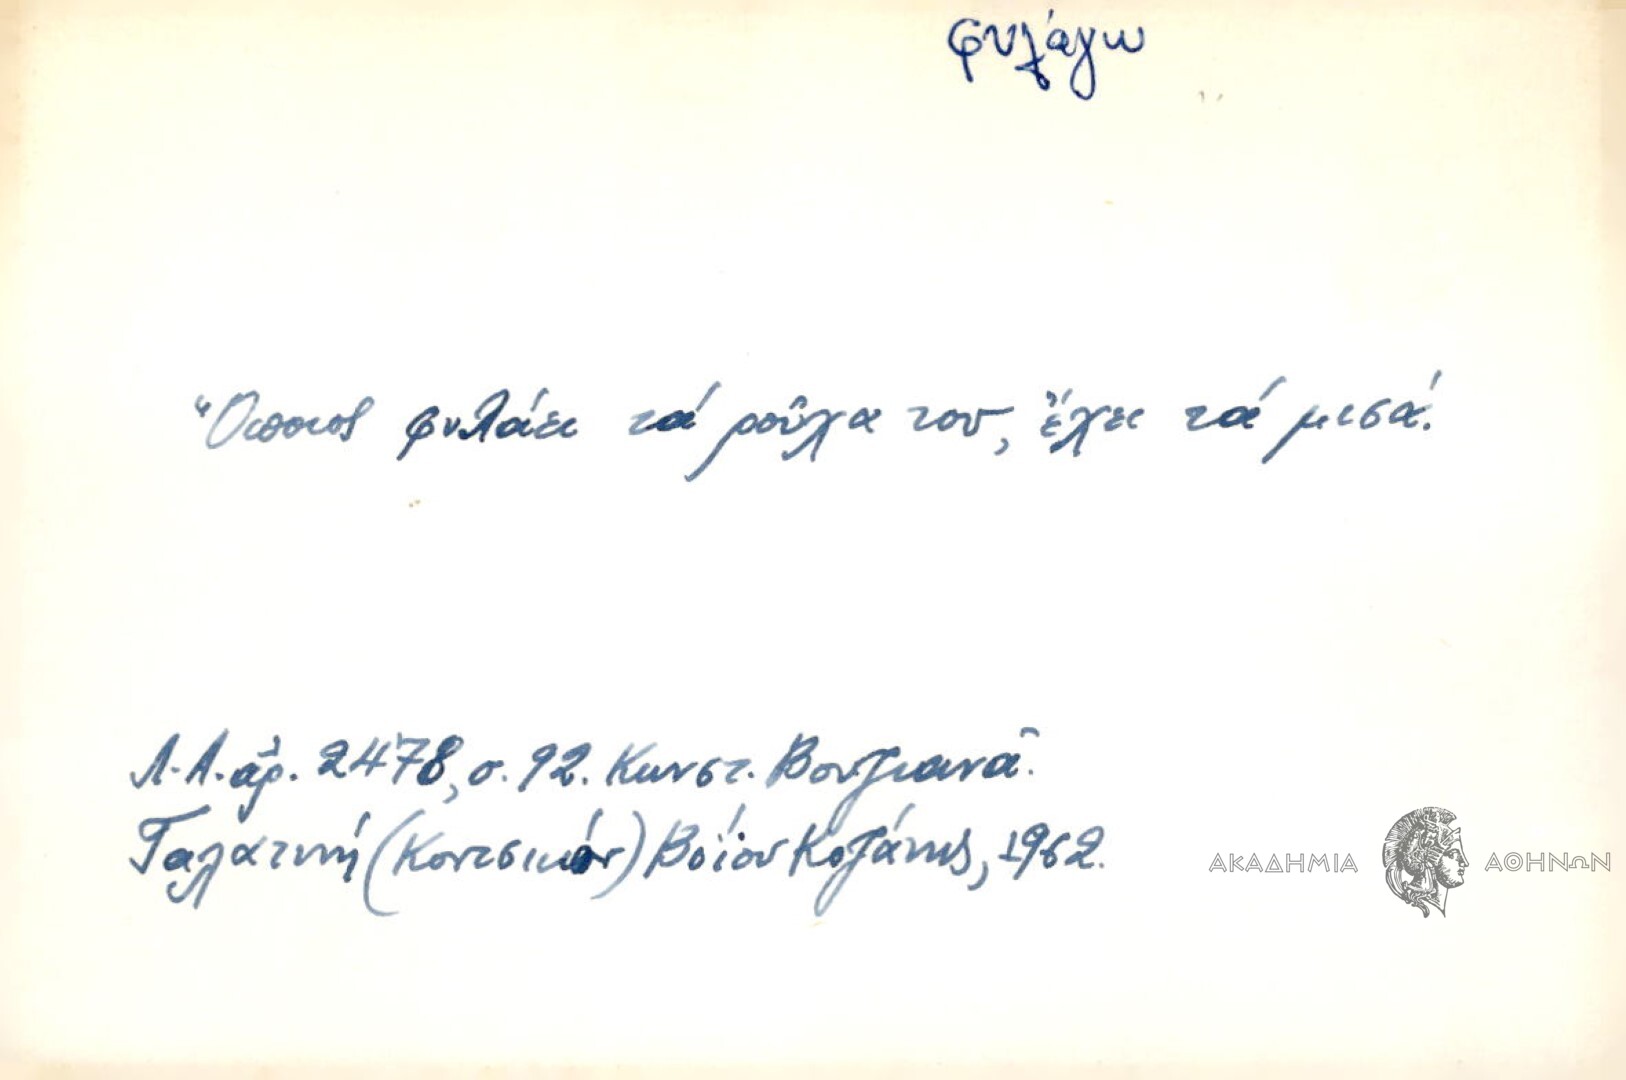 φυλάγω
Ὅποιος φυλάει τά ροῦχα του, ἔχει τά μισά.
Λ.Α. ἀρ. 2478, σ. 92. Κωνστ.
Γαλατινή (Κοντσικόν) Βοΐου Κοζάνης, 1962.
ΑΚΑΔΗΜΙΑ ΑΘΗΝΩΝ